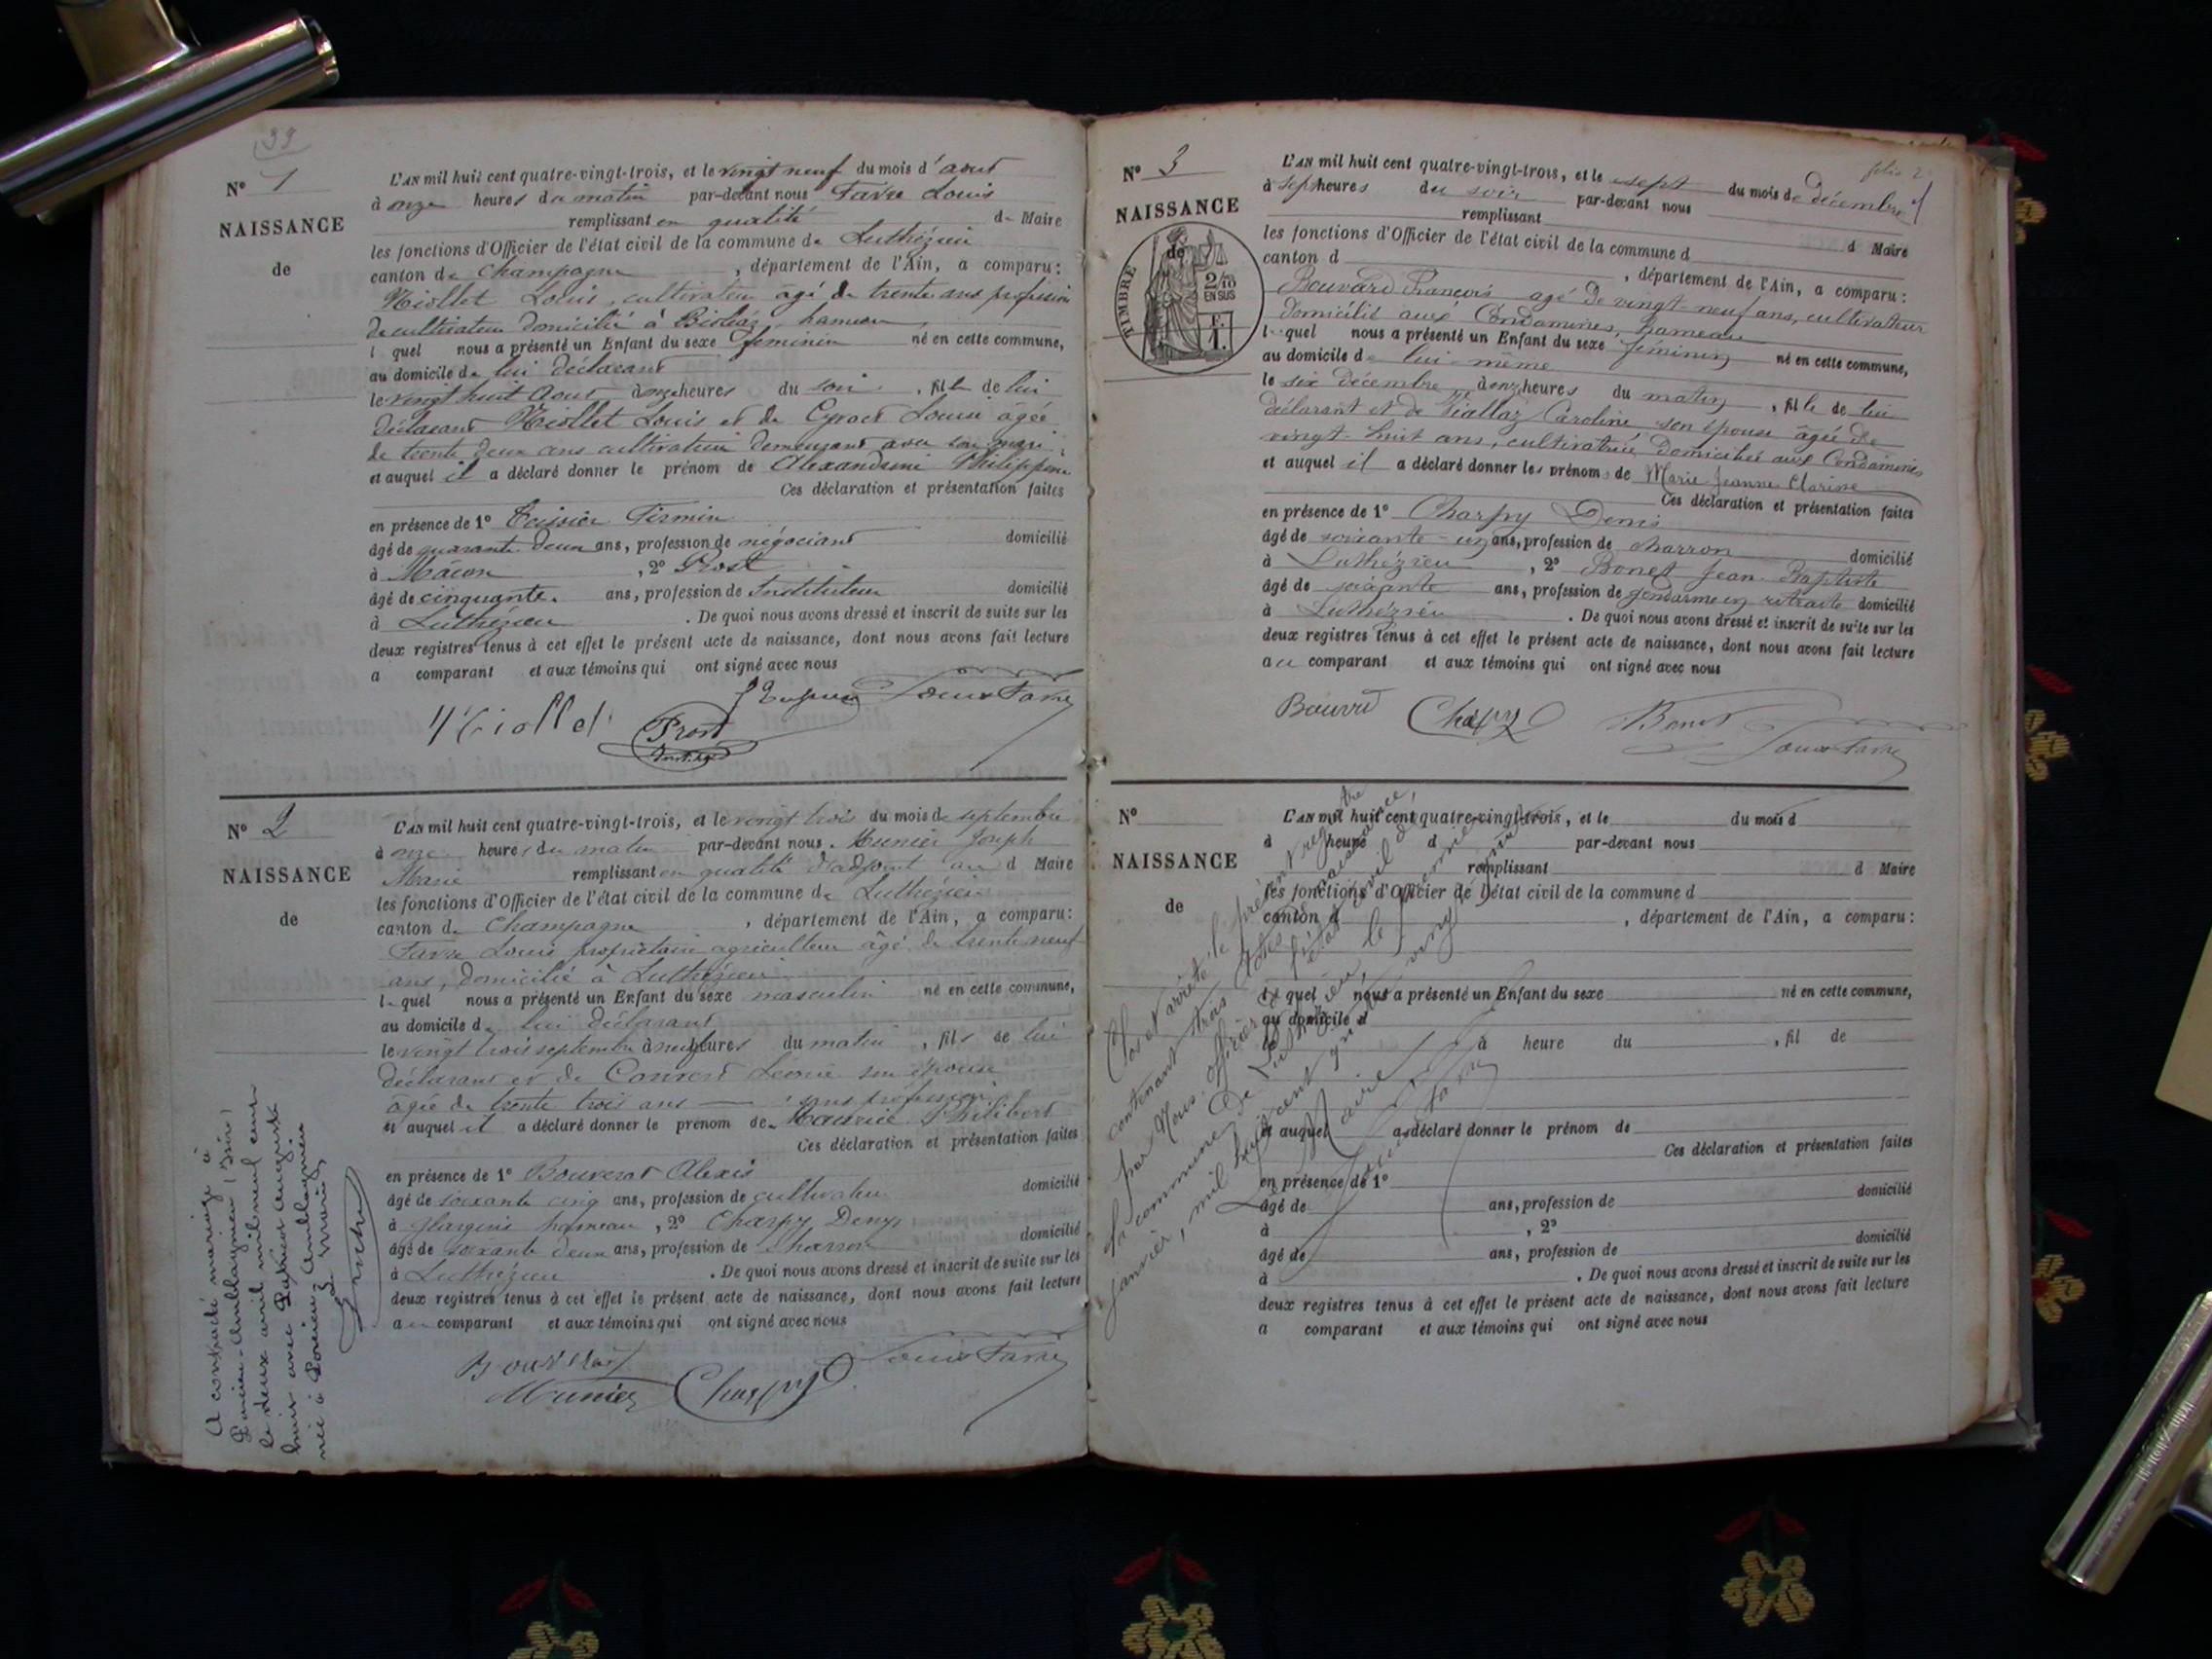 39
N° 1
NAISSANCE
de
L'AN mil huit cent quatre-vingt-trois, et le vingt neuf du mois d'aout
à onze heures du matin par-devant nous Favre Louis
remplissant en qualité de Maire
les fonctions d'Officier de l'état civil de la commune de Luthézieu
canton de Champagne, département de l'Ain, a comparu:
Louis, cultivateur âgé de trente ans profession
de cultivateur domicilié à hameau
l quel nous a présenté un Enfant du sexe féminin né en cette commune,
au domicile de lui déclarant
le vingt huit aout à onze heures du soir, fille de lui
déclarant Louis et de Louise âgée
de trente deux ans cultivateur demeurant avec son mari
et auquel il a déclaré donner le prénom de Alexandrine Philippine
Ces déclaration et présentation faites
en présence de 1° Firmin
âgé de quarante deux ans, profession de négociant domicilié
à Mâcon, 2° Prost
âgé de cinquante ans, profession de Instituteur domicilié
à Luthézieu. De quoi nous avons dressé et inscrit de suite sur les
deux registres tenus à cet effet le présent acte de naissance, dont nous avons fait lecture
a comparant et aux témoins qui ont signé avec nous
Louis Favre
Prost
N° 2
NAISSANCE
de
L'AN mil huit cent quatre-vingt-trois, et le vingt trois du mois de septembre
à onze heures du matin par-devant nous Munier Joseph
Marie remplissant en qualité d'adjoint au d Maire
les fonctions d'Officier de l'état civil de la commune de Luthézieu
canton de Champagne, département de l'Ain, a comparu:
Favre Louis propriétaire agriculteur âgé de trente neuf
ans, domicilié à Luthézieu
lequel nous a présenté un Enfant du sexe masculin né en cette commune,
au domicile de lui déclarant
le vingt trois septembre à neuf heures du matin, fils de lui
déclarant et de Convert Léonie son épouse
âgée de trente trois ans sans profession
et auquel il a déclaré donner le prénom de Maurice Philibert
Ces déclaration et présentation faites
en présence de 1° Bouverat Alexis
âgé de soixante cinq ans, profession de cultivateur domicilié
à hameau, 2° Charpy Denys
âgé de soixante deux ans, profession de charron domicilié
à Luthézieu. De quoi nous avons dressé et inscrit de suite sur les
deux registres tenus à cet effet le présent acte de naissance, dont nous avons fait lecture
au comparant et aux témoins qui ont signé avec nous
Louis Favre
Munier Charpy
A contracté mariage à
Porcieu-Amblagnieu (Isère)
le deux avril mil neuf cent
huit avec Augusta
née à Porcieu Amblagnieu
Le Maire
N° 3
folio 2
NAISSANCE
de
TIMBRE
2/10
EN SUS
L'AN mil huit cent quatre-vingt-trois, et le sept du mois de décembre
à sept heures du soir par-devant nous
remplissant d Maire
les fonctions d'Officier de l'état civil de la commune d
canton d, département de l'Ain, a comparu:
Bouvard François âgé de vingt-neuf ans, cultivateur
domicilié aux Condamines, hameau
lequel nous a présenté un Enfant du sexe féminin né en cette commune,
au domicile de lui-même
le six décembre à onze heures du matin, fille de lui
déclarant et de Caroline son épouse âgée de
vingt-huit ans, cultivatrice, domiciliée aux Condamines
et auquel il a déclaré donner les prénoms de Marie Jeanne Clarisse
Ces déclaration et présentation faites
en présence de 1° Charpy Denis
âgé de soixante-un ans, profession de charron domicilié
à Luthézieu, 2° Bonet Jean-Baptiste
âgé de soixante ans, profession de gendarme en retraite domicilié
à Luthézieu. De quoi nous avons dressé et inscrit de suite sur les
deux registres tenus à cet effet le présent acte de naissance, dont nous avons fait lecture
au comparant et aux témoins qui ont signé avec nous
Bouvard Charpy Bonet
Louis Favre
N°
NAISSANCE
de
L'AN mil huit cent quatre-vingt-trois, et le du mois d
à heure d par-devant nous
remplissant d Maire
les fonctions d'Officier de l'état civil de la commune d
canton d, département de l'Ain, a comparu:
l quel nous a présenté un Enfant du sexe né en cette commune,
au domicile d
le à heure du, fil de
et auquel a déclaré donner le prénom de
Ces déclaration et présentation faites
en présence de 1°
âgé de ans, profession de domicilié
à, 2°
âgé de ans, profession de domicilié
à. De quoi nous avons dressé et inscrit de suite sur les
deux registres tenus à cet effet le présent acte de naissance, dont nous avons fait lecture
a comparant et aux témoins qui ont signé avec nous
Clos et arrêté le présent registre
contenant trois actes de naissance,
par Nous, officier de l'état civil de
la commune de Luthézieu, le premier
janvier, mil huit cent quatre vingt
Le Maire
Louis Favre